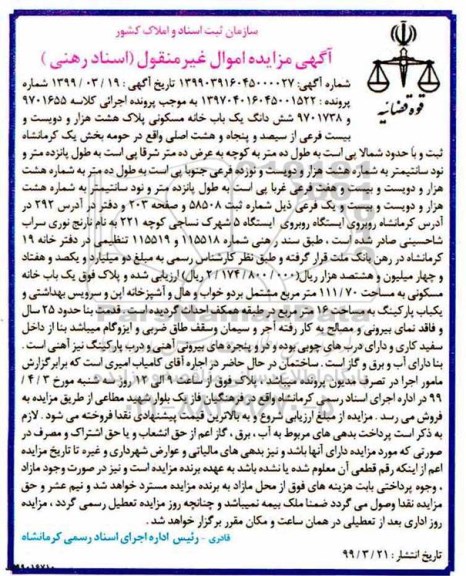 سازمان ثبت اسناد و املاک کشور
آگهی مزایده اموال غیرمنقول (اسناد رهنی)
قوه قضائیه
شماره آگهی: ۱۳۹۹۰۳۹۱۶۰۴۵۰۰۰۰۲۷ تاریخ آگهی: ۱۳۹۹/۰۳/۱۹ شماره
پرونده: ۱۳۹۷۰۴۰۱۶۰۴۵۰۰۱۵۲۲ به موجب پرونده اجرائی کلاسه ۹۷۰۱۶۵۵
و ۹۷۰۱۷۳۸ شش دانگ یک باب خانه مسکونی پلاک هشت هزار و دویست و
بیست فرعی از سیصد و پنجاه و هشت اصلی واقع در حومه بخش یک کرمانشاه
ثبت و با حدود شمالا پی است به طول ده متر به کوچه به عرض ده متر شرقا پی است به طول پانزده متر و
نود سانتیمتر به شماره هشت هزار و دویست و نوزده فرعی جنوبا پی است به طول ده متر به شماره هشت
هزار و دویست و بیست و هفت فرعی غربا پی است به طول پانزده متر و نود سانتیمتر به شماره هشت
هزار و دویست و بیست و یک فرعی ذیل شماره ثبت ۵۸۵۰۸ و صفحه ۲۰۳ و دفتر ۲۹۲ در آدرس
کرمانشاه روبروی ایستگاه روبروی ایستگاه ۵ شهرک نساجی کوچه ۲۲۱ به نام نارنج نوری سراب
شاحسینی صادر شده است، طبق سند رهنی شماره ۱۱۵۵۱۸ و ۱۱۵۵۱۹ تنظیمی در دفتر خانه ۱۹
کرمانشاه در رهن بانک ملت قرار گرفته و طبق نظر کارشناس رسمی به مبلغ دو میلیارد و یکصد و هفتاد
و چهار میلیون و هشتصد هزار ریال (۲/۱۷۴/۸۰۰/۰۰۰ ریال) ارزیابی شده و پلاک فوق یک باب خانه
مسکونی به مساحت ۱۱۱/۷۰ متر مربع مشتمل بردو خواب و هال و آشپزخانه اپن و سرویس بهداشتی و
یکباب پارکینگ به مساحت ۱۶ متر مربع در طبقه همکف احداث گردیده است و قدمت بنا حدود ۲۵ سال
و فاقد نمای بیرونی و مصالح به کار رفته آجر و سیمان وسقف طاق ضربی و ایزوگام میباشد بنا از داخل
سفید کاری و دارای درب های چوبی بوده و در و پنجره های بیرونی آهنی و درب پارکینگ نیز آهنی است.
بنا دارای آب و برق و گاز است. ساختمان در حال حاضر در اجاره آقای کامیاب امیری است که برابر گزارش
مامور اجرا در تصرف مدیون پرونده میباشد. پلاک فوق از ساعت ۹ الی ۱۲ روز سه شنبه مورخ ۳/۴/
۹۹ در اداره اجرای اسناد رسمی کرمانشاه واقع در فرهنگیان فاز یک بلوار شهید مطاعی از طریق مزایده به
فروش می رسد. مزایده از مبلغ ارزیابی شروع و به بالاترین قیمت پیشنهادی نقدا فروخته می شود. لازم
به ذکر است پرداخت بدهی های مربوط به آب، برق، گاز اعم از حق انشعاب و یا حق اشتراک و مصرف در
صورتی که مورد مزایده دارای آنها باشد و نیز بدهی های مالیاتی و عوارض شهرداری و غیره تا تاریخ مزایده
اعم از اینکه رقم قطعی آن معلوم شده یا نشده باشد به عهده برنده مزایده است و نیز در صورت وجود مازاد
، وجوه پرداختی بابت هزینه های فوق از محل مازاد به برنده مزایده مسترد خواهد شد و نیم عشر و حق
مزایده نقدا وصول می گردد ضمنا ملک بیمه نمیباشد و چنانچه روز مزایده تعطیل رسمی گردد، مزایده
روز اداری بعد از تعطیلی در همان ساعت و مکان مقرر برگزار خواهد شد.
قادری - رئیس اداره اجرای اسناد رسمی کرمانشاه
تاریخ انتشار: ۹۹/۳/۲۱